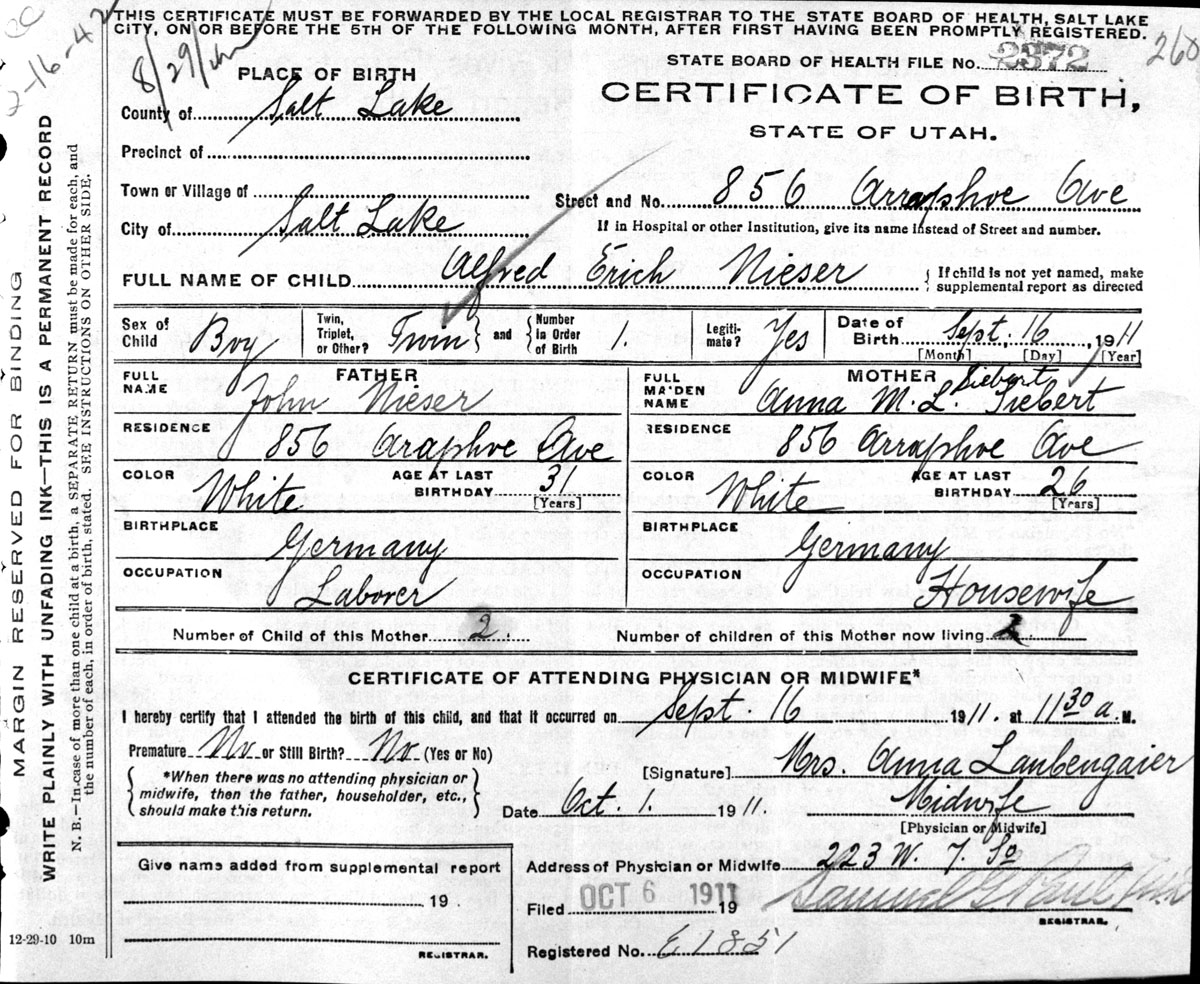 THIS CERTIFICATE MUST BE FORWARDED BY THE LOCAL REGISTRAR TO THE STATE BOARD OF HEALTH, SALT LAKE
CITY, ON OR BEFORE THE 5TH OF THE FOLLOWING MONTH, AFTER FIRST HAVING BEEN PROMPTLY REGISTERED.
2-16-42
8/29/
268
STATE BOARD OF HEALTH FILE No. 2372
PLACE OF BIRTH
CERTIFICATE OF BIRTH,
STATE OF UTAH.
County of Salt Lake
Precinct of
Town or Village of
Street and No. 856 Arraphoe Ave
City of Salt Lake
If in Hospital or other Institution, give its name instead of Street and number.
FULL NAME OF CHILD Alfred Erich Nieser { If child is not yet named, make
supplemental report as directed
Sex of Child Boy
Twin, Triplet, or Other? Twin } and { Number in Order of Birth 1.
Legiti-mate? Yes
Date of Birth Sept. 16, 1911
[Month] [Day] [Year]
FATHER
FULL NAME John Nieser
RESIDENCE 856 Araphoe Ave
COLOR White AGE AT LAST BIRTHDAY 31 [Years]
BIRTHPLACE Germany
OCCUPATION Laborer
MOTHER
FULL MAIDEN NAME Anna M. L. Siebert
Siebert
RESIDENCE 856 Arraphoe Ave
COLOR White AGE AT LAST BIRTHDAY 26 [Years]
BIRTHPLACE Germany
OCCUPATION Housewife
Number of Child of this Mother 2. Number of children of this Mother now living 2
CERTIFICATE OF ATTENDING PHYSICIAN OR MIDWIFE*
I hereby certify that I attended the birth of this child, and that it occurred on Sept. 16 1911. at 11 30 a. M.
Premature No or Still Birth? No (Yes or No)
*When there was no attending physician or
midwife, then the father, householder, etc.,
should make this return.
[Signature] Mrs. Anna Laubengaier
Date Oct. 1. 1911. Midwife
[Physician or Midwife]
Give name added from supplemental report
19
REGISTRAR.
Address of Physician or Midwife 223 W. 7. So
Filed OCT 6 1911 19 Samuel G. Paul
REGISTRAR.
Registered No. E1851
12-29-10 10m
MARGIN RESERVED FOR BINDING
WRITE PLAINLY WITH UNFADING INK—THIS IS A PERMANENT RECORD
N. B.—In case of more than one child at a birth, a SEPARATE RETURN must be made for each, and
the number of each, in order of birth, stated. SEE INSTRUCTIONS ON OTHER SIDE.